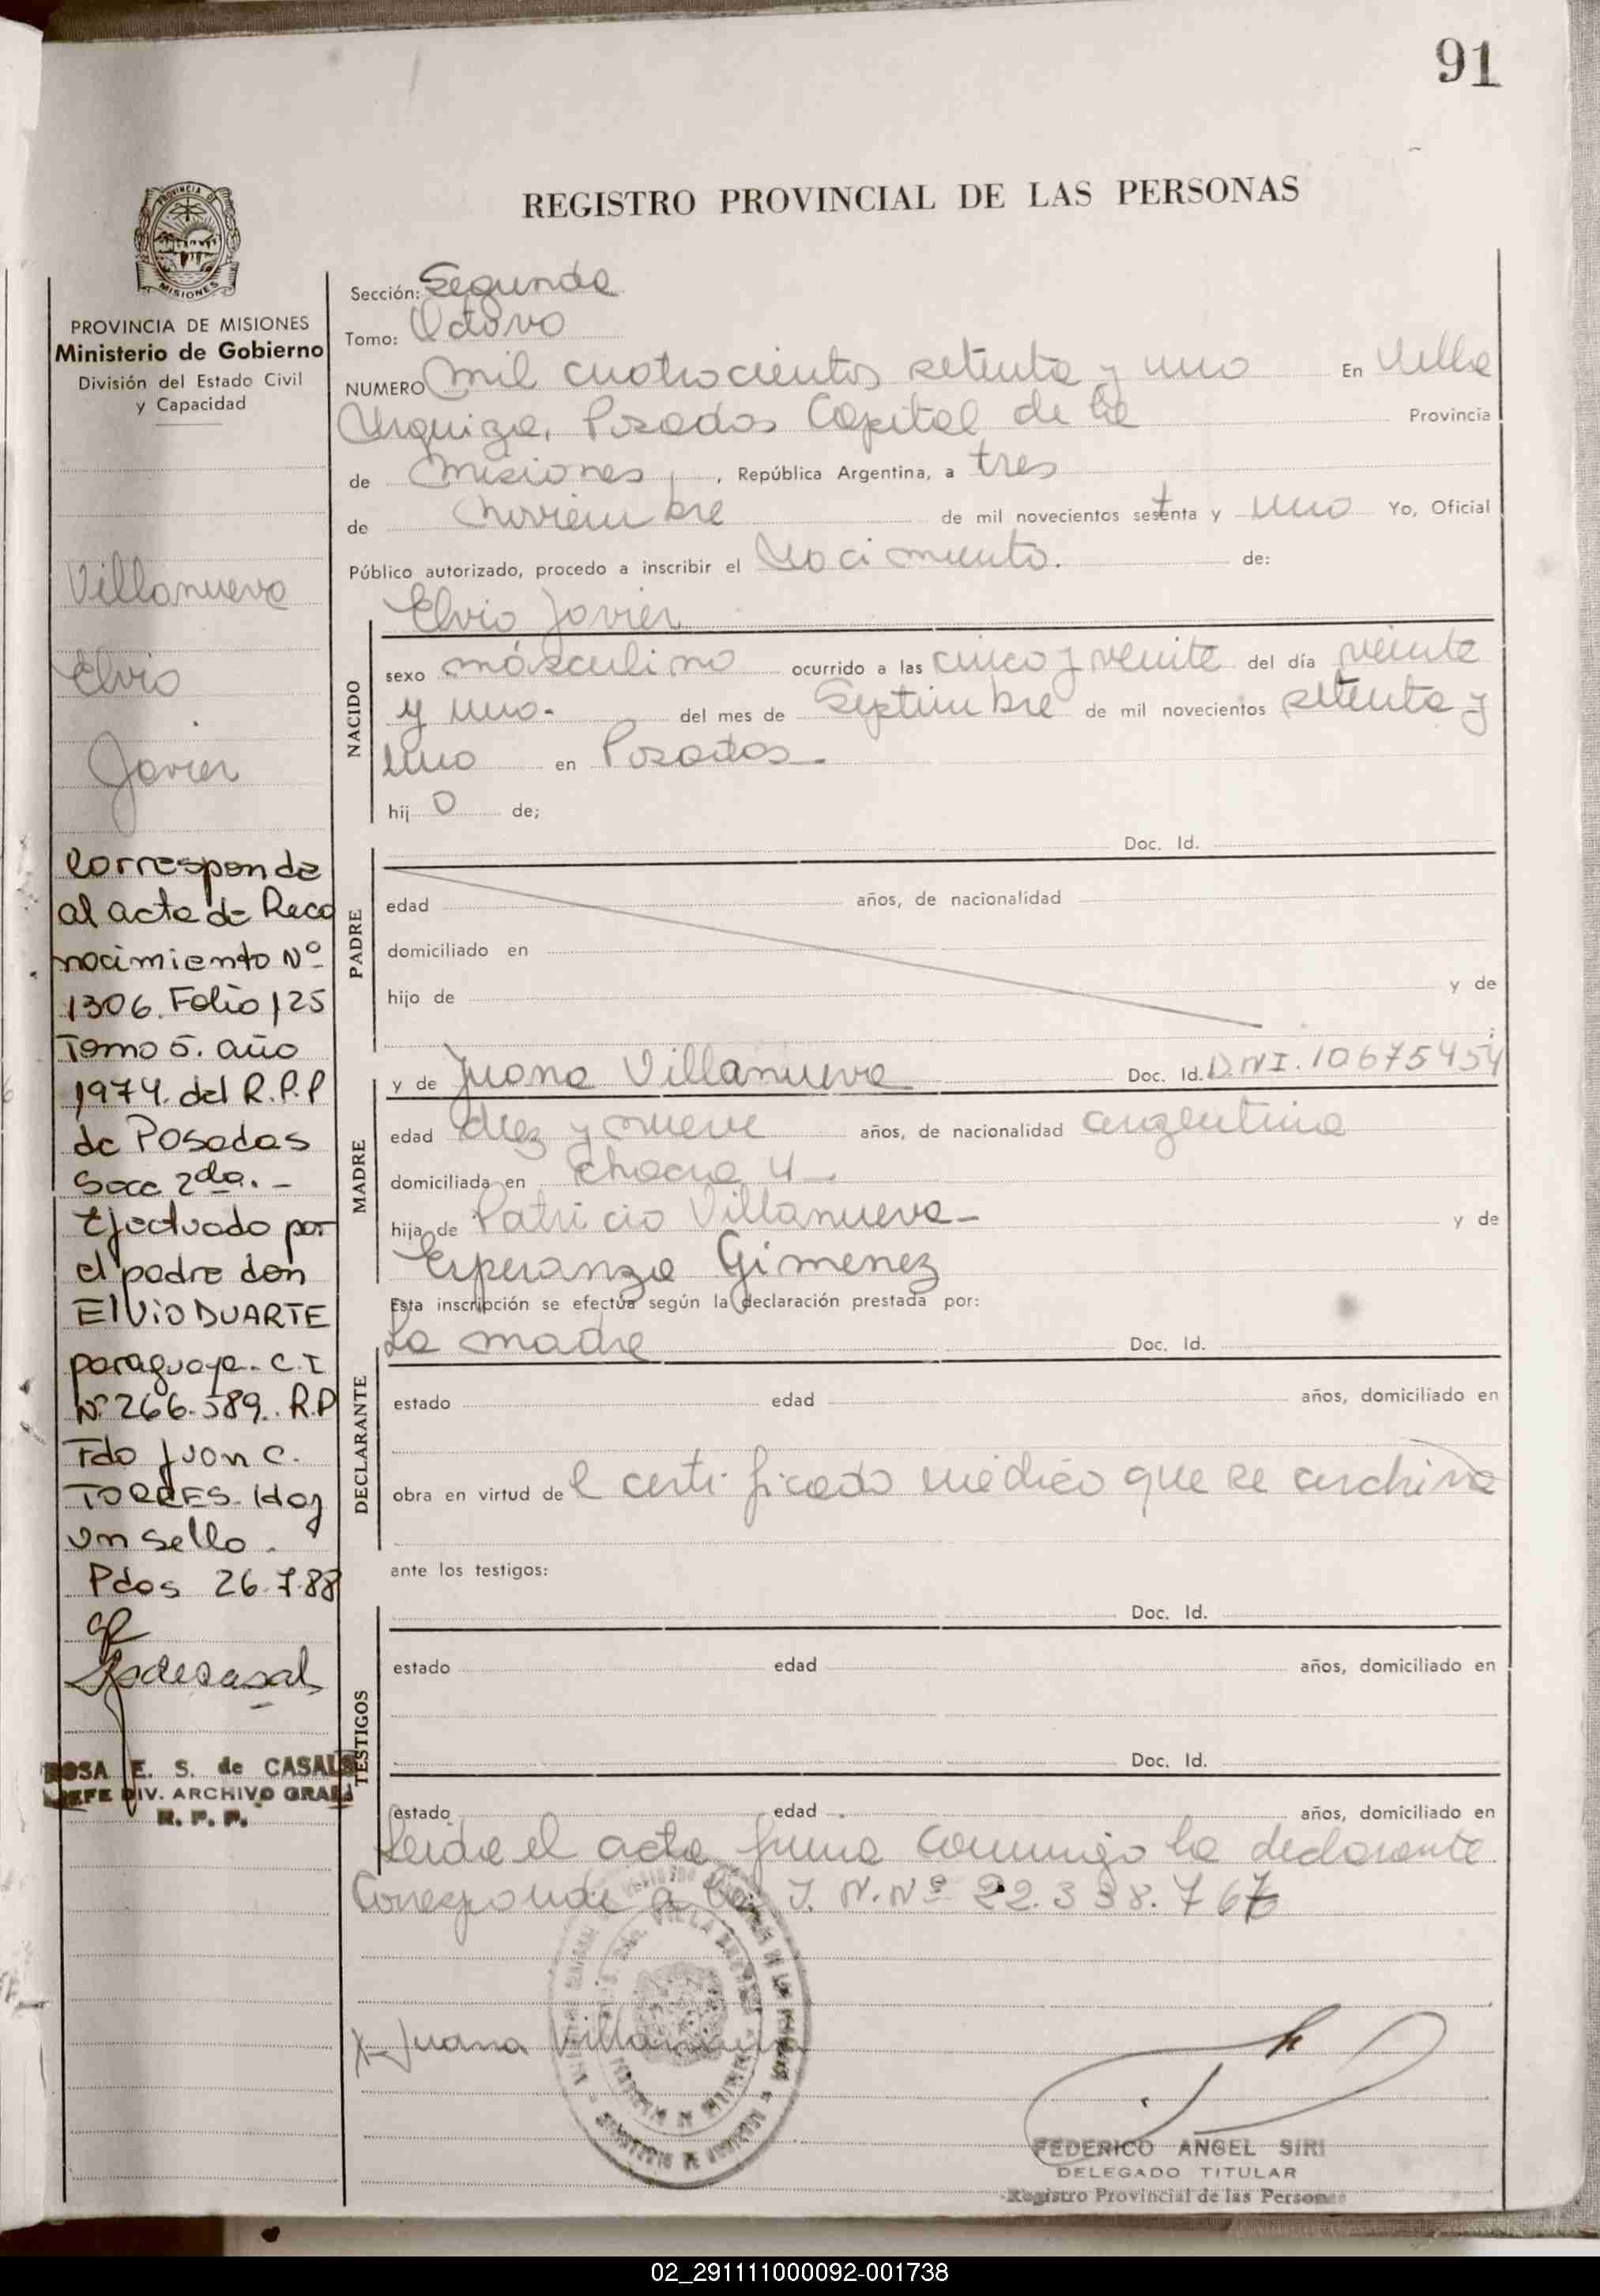 91
REGISTRO PROVINCIAL DE LAS PERSONAS
PROVINCIA DE MISIONES
Ministerio de Gobierno
División del Estado Civil
y Capacidad
Villanueva
Elvio
Javier
Corresponde
al acta de Reco
nocimiento Nº
1306. Folio 125
Tomo 5. año
1974. del R.P.P
de Posadas
Secc 2da. -
Efectuado por
el padre don
ElViO DUARTE
paraguayo. C.I
Nº 266.589. R.P
Fdo Juan C.
TORRES. Hay
un sello.
Pdas 26.7.88
ROSA E. S. de CASALS
JEFE DIV. ARCHIVO GRAL
R. P. P.
Sección: Segunda
Tomo: Octavo
NUMERO mil cuatrocientos setenta y uno En Villa
Urquiza, Posadas Capital de la Provincia
de Misiones, República Argentina, a tres
de Noviembre de mil novecientos setenta y uno Yo, Oficial
Público autorizado, procedo a inscribir el Nacimiento. de:
Elvio Javier
NACIDO
sexo másculino ocurrido a las cinco y veinte del día veinte
y uno. del mes de Septiembre de mil novecientos setenta y
uno en Posadas.
hij o de;
PADRE
Doc. Id.
edad años, de nacionalidad
domiciliado en
hijo de y de
;
MADRE
y de Juana Villanueva Doc. Id. D.N.I. 10675454
edad diez y nueve años, de nacionalidad argentina
domiciliada en Chacra 4
hija de Patricio Villanueva y de
Esperanza Gimenez
Esta inscripción se efectúa según la declaración prestada por:
DECLARANTE
La madre Doc. Id.
estado edad años, domiciliado en
obra en virtud de l certificado médico que se archiva
ante los testigos:
TESTIGOS
Doc. Id.
estado edad años, domiciliado en
Doc. Id.
estado edad años, domiciliado en
Leida el acta firma conmigo la declarante
Corresponde a Nº 22.338.767
Juana Villanueva
FEDERICO ANGEL SIRI
DELEGADO TITULAR
Registro Provincial de las Personas
02_291111000092-001738